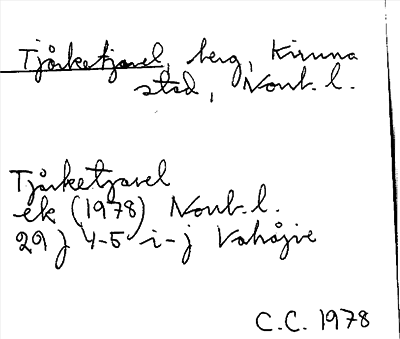 Tjårketjavel, berg, Kiruna
stad, Norrb. l.
Tjårketjavel
ek (1978) Norrb. l.
29 J 4-5 i-j
C.C. 1978